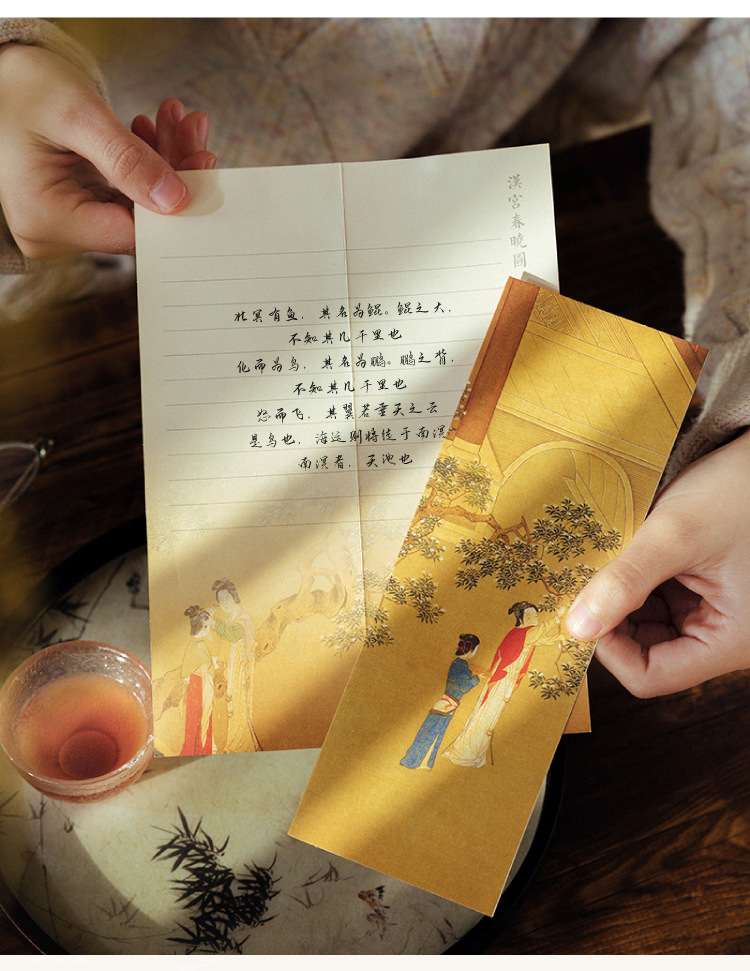 漢宮春曉圖
北冥有鱼，其名为鲲。鲲之大，
不知其几千里也
化而为鸟，其名为鹏。鹏之背，
不知其几千里也
怒而飞，其翼若垂天之云
是鸟也，海运则将徒于南溟
南溟者，天池也